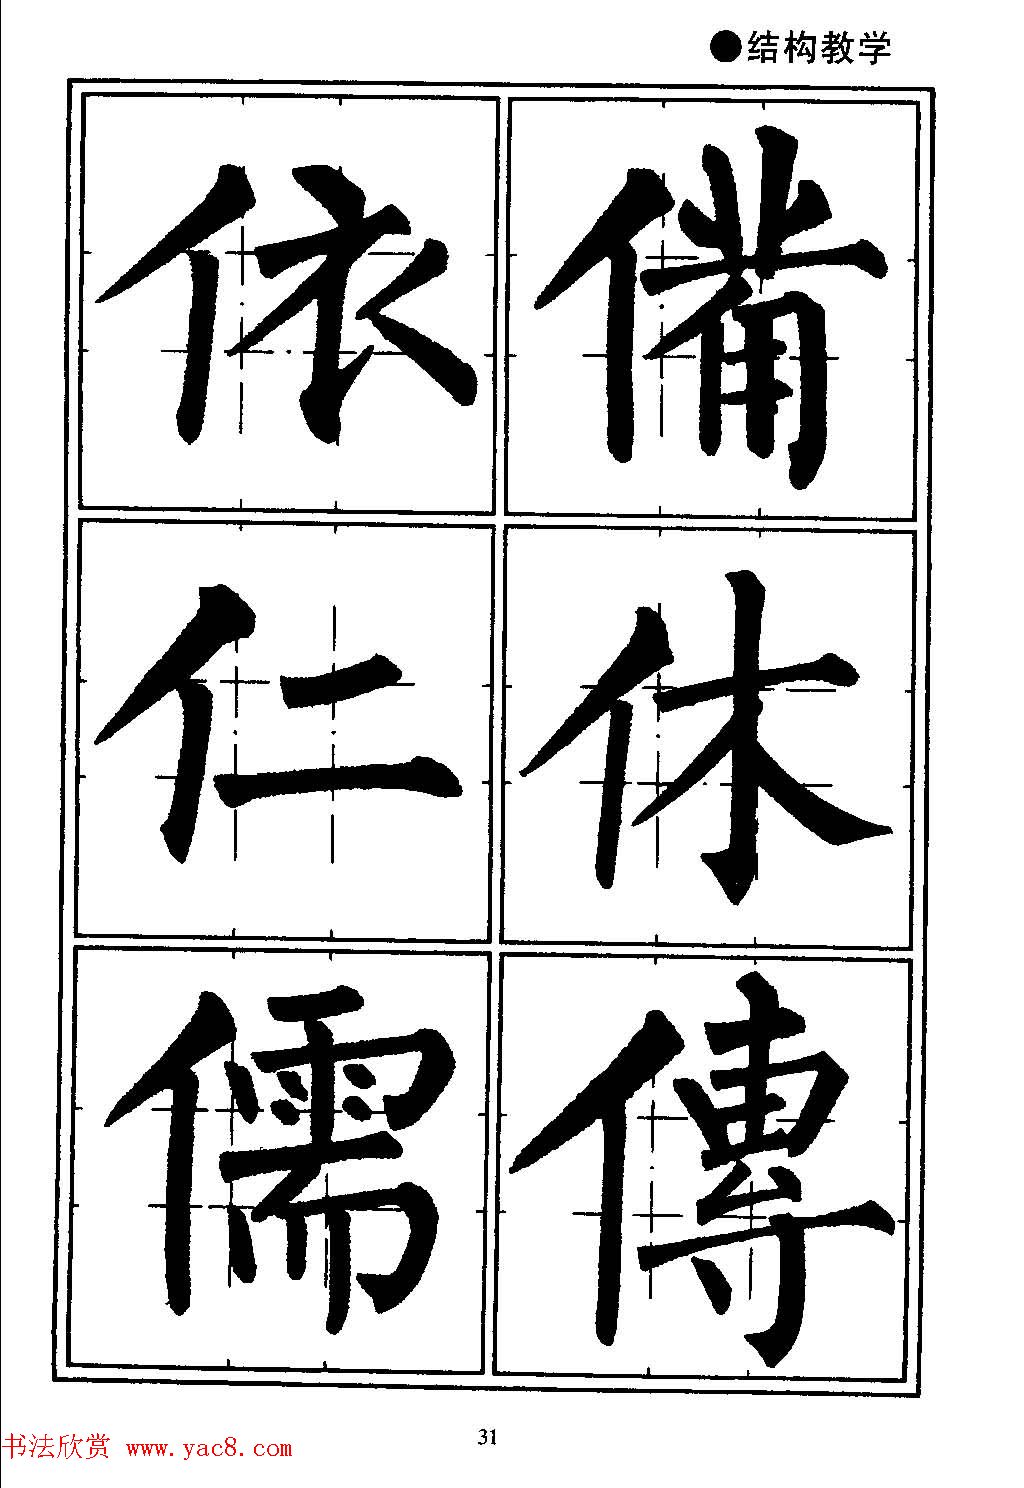 ●结构教学
依備
仁休
儒傳
31
书法欣赏 www.yac8.com